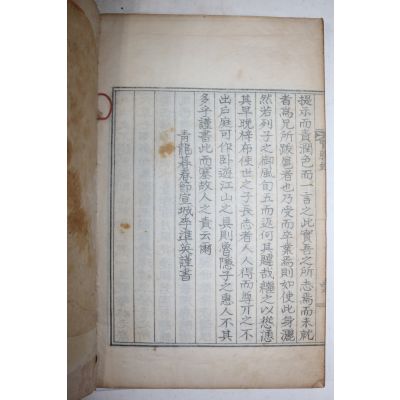 提示而責潤色而一言之此實吾之所志焉而未就
者爲兄所跋扈者也乃受而卒業焉則如使此身灑
然若列子之御風旬五而返何其腱哉繼之以慫慂
其早晩梓布使世之子長志者人人得而尊斤之不
出戶庭可作臥遊江山之具則魯隱子之惠人不其
多乎謹書此而塞故人之責云爾
青龍暮春節宣城李準英謹書